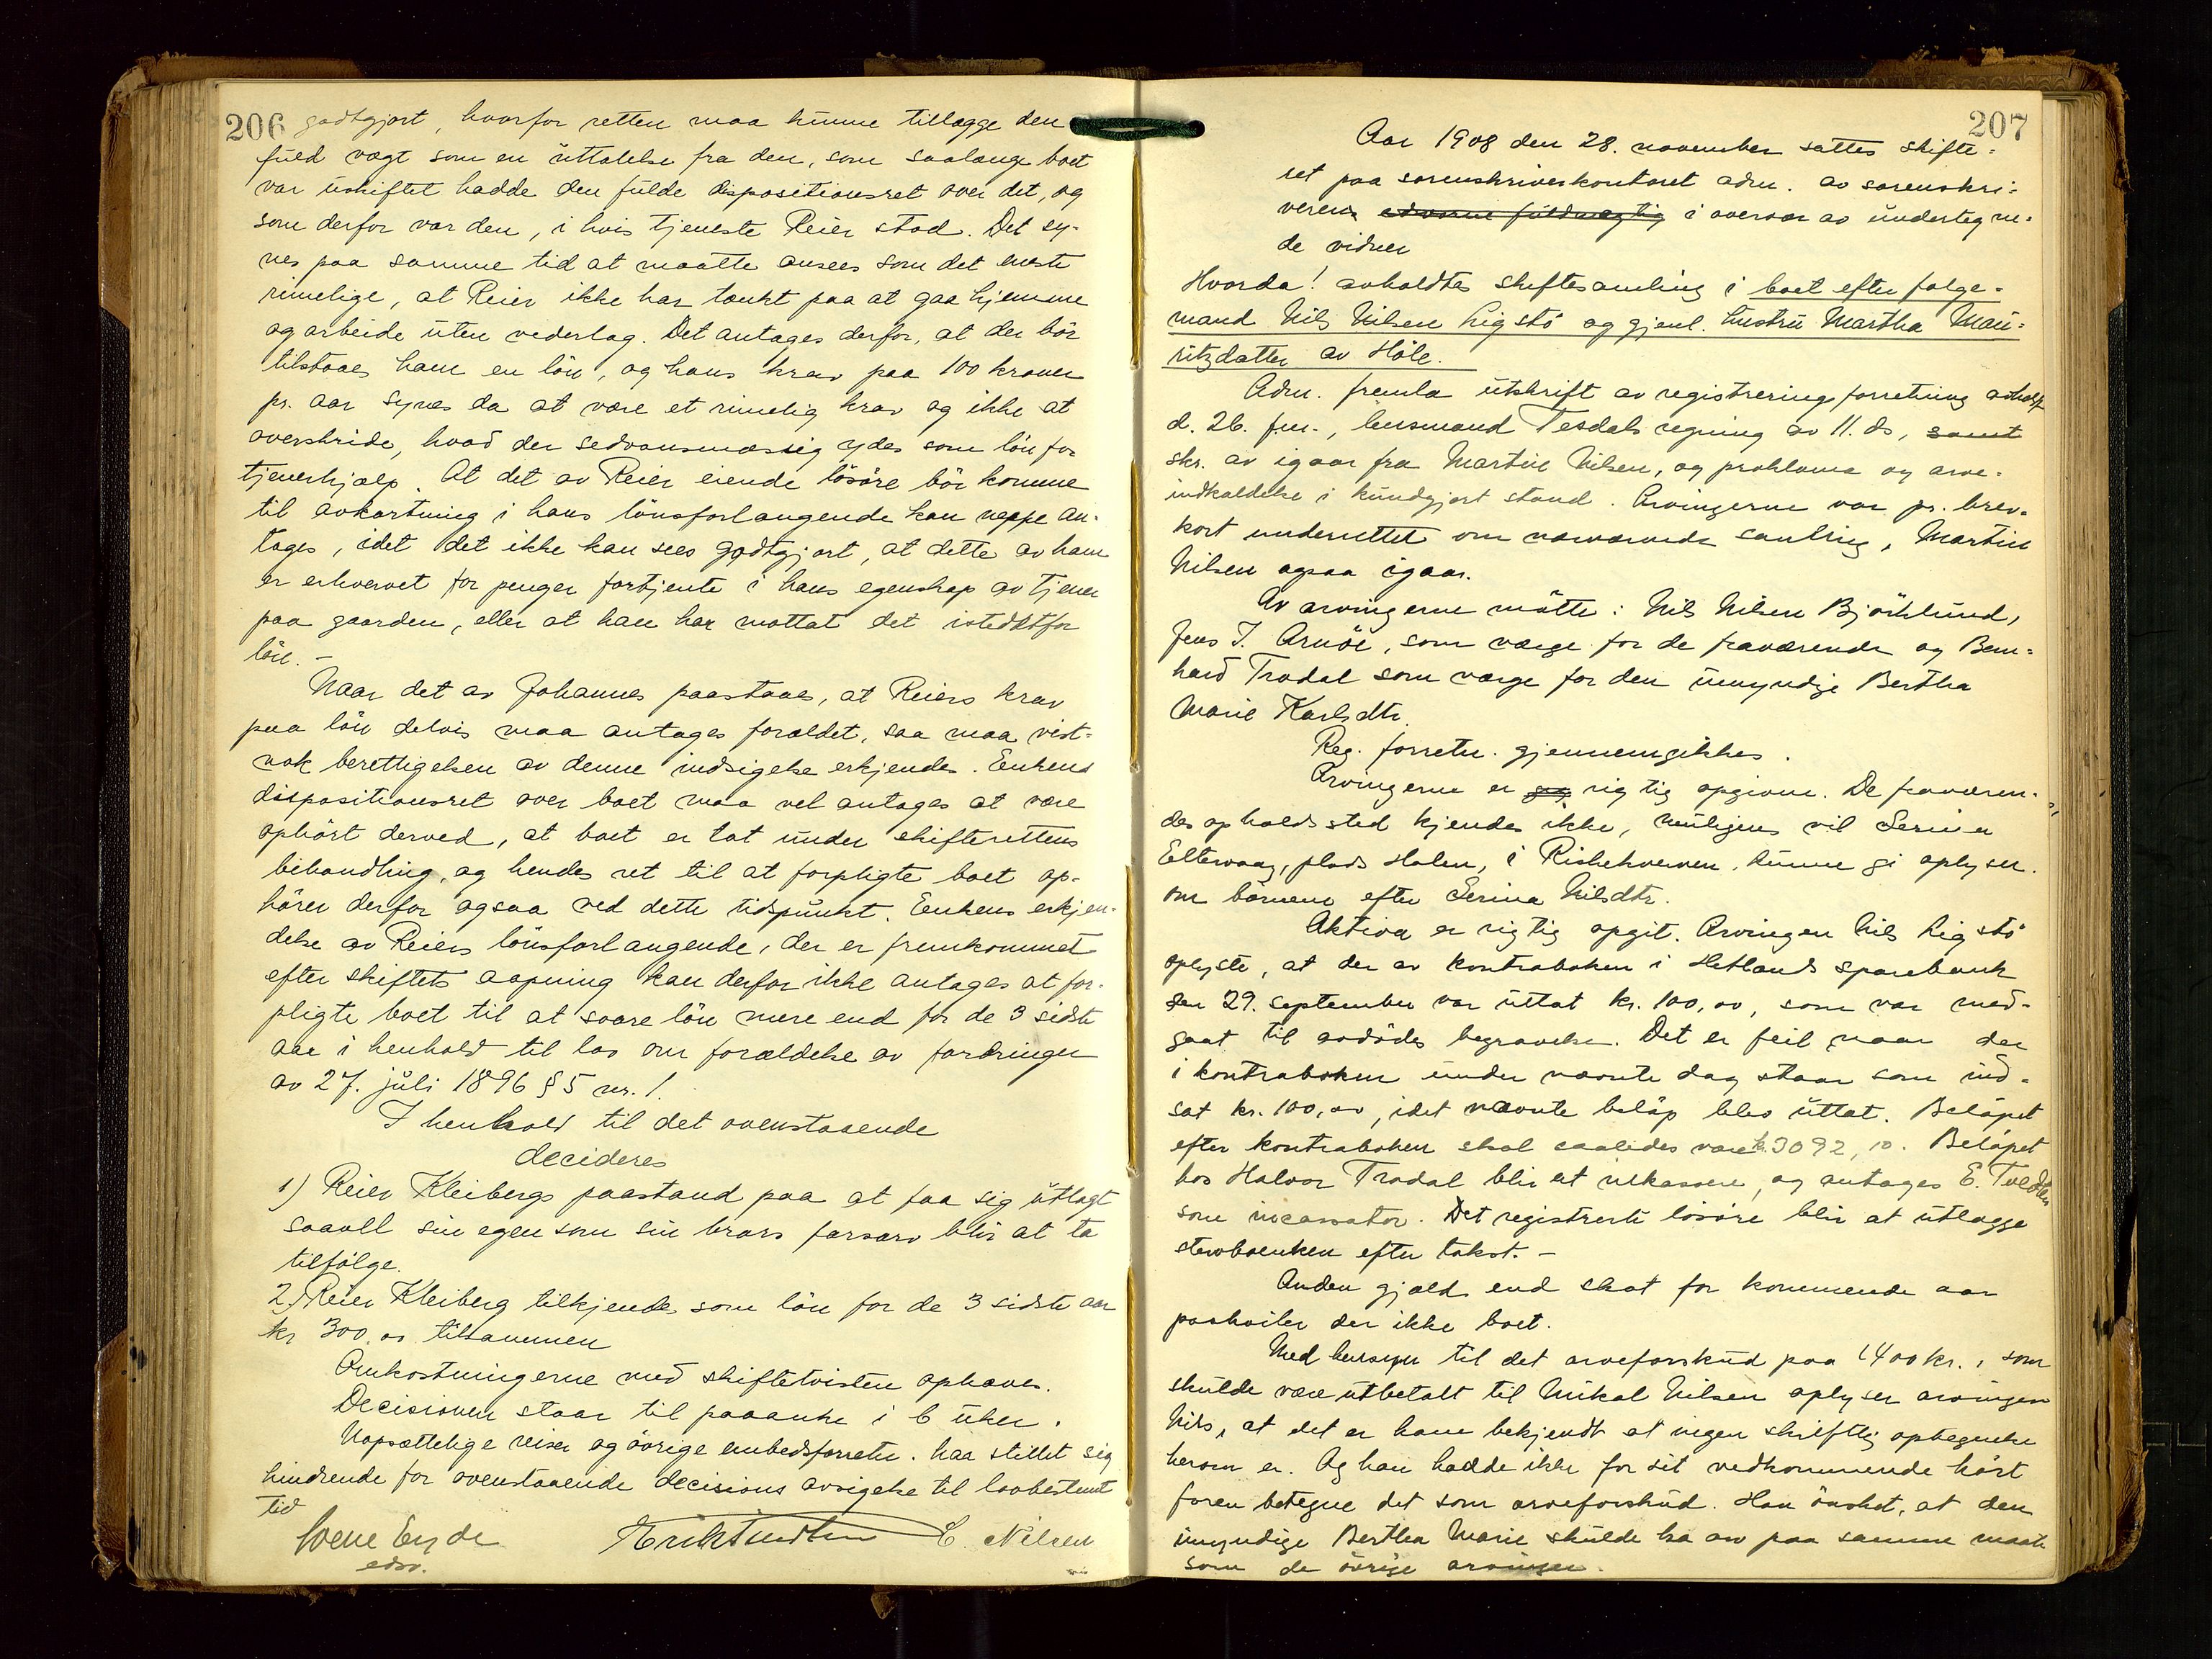 206 godtgjort, hvorfor retten maa kunne tillægge den
fuld vægt som en uttalelse fra den, som saalænge boet
var uskiftet hadde den fulde dispositionsret over det, og
som derfor var den, i hvis tjeneste Reier stod. Det sy-
nes paa samme tid at maatte ansees som det mest
rimelige, at Reier ikke har tænkt paa at gaa hjemme
og arbeide uten vederlag. Det antages derfor, at der bör
tilstaaes ham en lön, og hans krav paa 100 kroner
pr. aar synes da at være et rimelig krav og ikke at
overskride, hvad der sedvansmæssig ydes som lön for
tjenerhjælp. At det av Reier eiende lösöre bör komme
til avkortning i hans lönsforlangende kan neppe an-
tages, idet det ikke kan sees godtgjort, at dette av ham
er erhvervet for penger fortjente i hans egenskap av tjener
paa gaarden, eller at han har mottat det istedetfor
lön. -
Naar det av Johannes paastaaes, at Reiers krav
paa lön delvis maa antages forældet, saa maa vist-
nok berettigelsen av denne indsigelse erkjendes. Enkens
dispositionsret over boet maa vel antages at være
ophört derved, at boet er tat under skifterettens
behandling, og hendes ret til at forpligte boet op-
hörer derfor ogsaa ved dette tidspunkt. Enkens erkjen-
delse av Reiers lönsforlangende, der er fremkommet
efter skiftets aapning kan derfor ikke antages at for-
pligte boet til at svare lön mere end for de 3 sidste
aar i henhold til lov om forældelse av fordringer
av 27. juli 1896 § 5 nr. 1.
I henhold til det ovenstaaende
decideres
1) Reier Kleibergs paastand paa at faa sig utlagt
saavell sin egen som sin brors farsarv blir at ta
tilfölge.
2) Reier Kleiberg tilkjendes som lön for de 3 sidste aar
kr 300.00 tilsammen
Omkostningerne ved skiftetvisten ophæves.
Decisionen staar til paaanke i 6 uker.
Uopsættelige reiser og övrige embedsforretn. har stillet sig
hindrende for ovenstaaende decisions avsigelse til lovbestemt
tid
edsv.
E. Nilsen
207
Aar 1908 den 28. november sattes skifte-
ret paa sorenskriverkontoret adm. av sorenskri-
veren edsvorne fuldmægtig i overvær av undertegne-
de vidner
Hvorda! avholdtes skiftesamling i boet efter følge-
mand Nils Nilsen Ligstö og gjenl. hustru Martha Mau-
ritzdatter av Höle.
Adm. fremla utskrift av registreringsforretning avholdt
d. 26. f.m., lensmand Tesdals regning av 11. ds, samt
skr. av igaar fra Martin Nilsen, og proklama og arve-
indkaldelse i kundgjort stand. Arvingerne var pr. brev-
kort underrettet om nærværende samling, Martin
Nilsen ogsaa igaar.
Av arvingerne mötte: Nils Nilsen Björklund,
Jens I. Arnöe, som værge for de fraværende og Bern-
hard Trodal som værge for den umyndige Bertha
Marie Karlsdtr.
Reg. forretn. gjennemgikkes.
Arvingerne er rigtig opgivne. De fraværen-
des opholdssted kjendes ikke, muligens vil Serina
Eltervaag, plads Holen, i Riskekverven kunne gi oplysn.
om börnene efter Serina Nilsdtr.
Aktiva er rigtig opgit. Arvingen Nils Ligstö
oplyste, at der av kontraboken i Hetlands sparebank
den 29. september var uttat kr. 100,00, som var med-
gaat til avdödes begravelse. Det er feil naar der
i kontraboken under nævnte dag staar som ind-
sat kr. 100,00, idet nævnte belöp blev uttat. Belöpet
efter kontraboken skal saaledes være kr. 3092,10. Belöpet
hos Halvor Trodal blir at inkassere, og antages E. Tvedten
som incassator. Det registrerte lösöre blir at utlægge
stervboenken efter takst. -
Anden gjæld end skat for kommende aar
paahviler der ikke boet.
Med hensyn til det arveforskud paa 1400 kr., som
skulde være utbetalt til Mikal Nilsen oplyser arvingen
Nils, at det er ham bekjendt at ingen skriftlig optegnelse
herom er. Og han hadde ikke for sit vedkommende hört
faren betegne det som arveforskud. Han önsket, at den
umyndige Bertha Marie skulde ha arv paa samme maate
som de övrige arvinger.